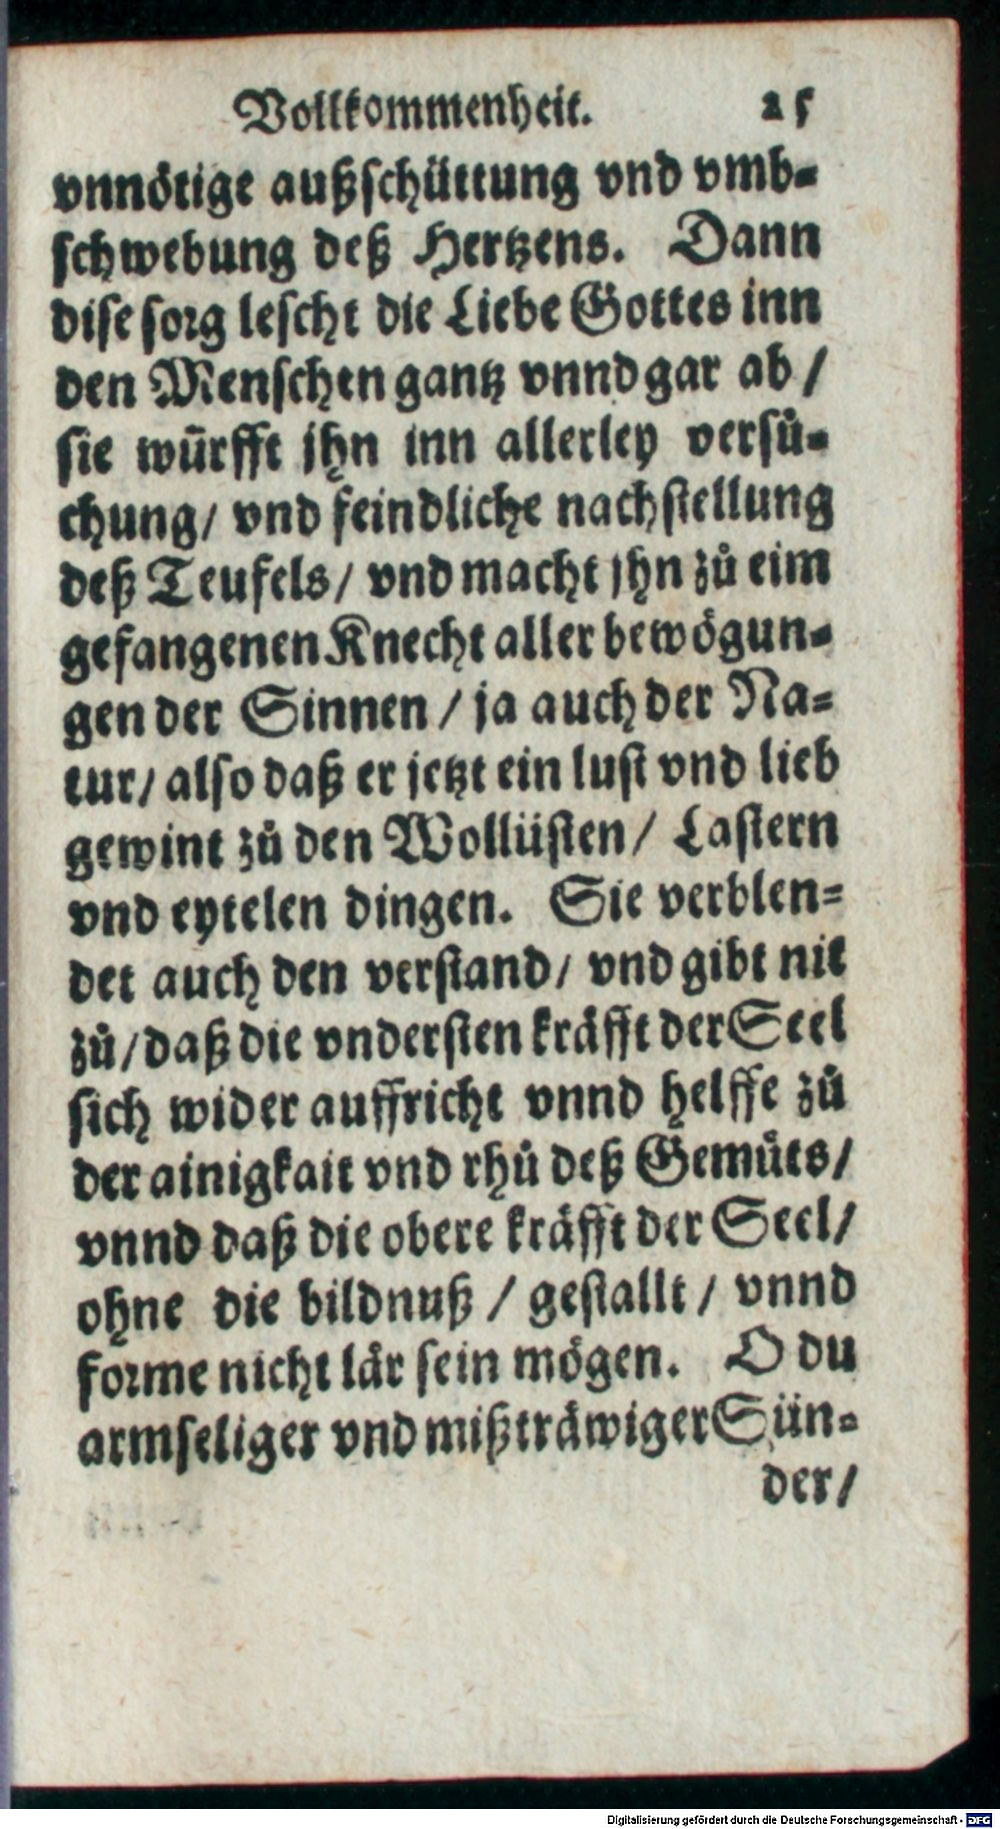 Vollkommenheit. 25
vnnötige außschüttung vnd vmb-
schwebung deß Hertzens. Dann
dise sorg lescht die Liebe Gottes inn
den Menschen gantz vnnd gar ab /
sie würfft jhn inn allerley versů-
chung / vnd feindliche nachstellung
deß Teufels / vnd macht jhn zů eim
gefangenen Knecht aller bewögun-
gen der Sinnen / ja auch der Na-
tur / also daß er jetzt ein lust vnd lieb
gewint zů den Wollüsten / Lastern
vnd eytelen dingen. Sie verblen-
det auch den verstand / vnd gibt nit
zů / daß die vndersten kräfft der Seel
sich wider auffricht vnnd helffe zů
der ainigkait vnd rhů deß Gemüts /
vnnd daß die obere kräfft der Seel /
ohne die bildnuß / gestallt / vnnd
forme nicht lär sein mögen. O du
armseliger vnd mißträwiger Sün-
der /
Digitalisierung gefördert durch die Deutsche Forschungsgemeinschaft - DFG